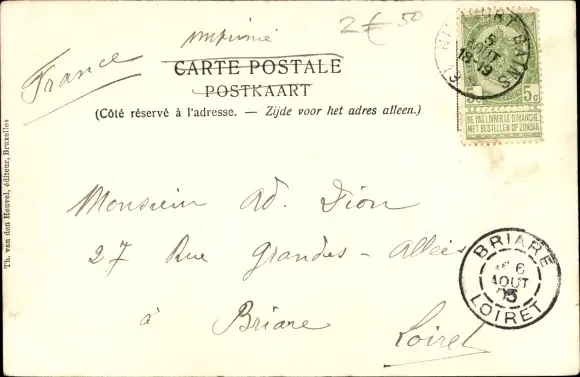 imprimé
2€50
France
CARTE POSTALE
POSTKAART
(Côté réservé à l'adresse. — Zijde voor het adres alleen.)
5 AOUT 18-19
BAINS
5c 5c
NE PAS LIVRER LE DIMANCHE
NIET BESTELLEN OP ZONDAG
Th. van den Heuvel, éditeur, Bruxelles
Monsieur Ad. Dion
27 Rue Grandes-Allée
à Briare
Loiret
BRIARE
6
AOUT
05
LOIRET